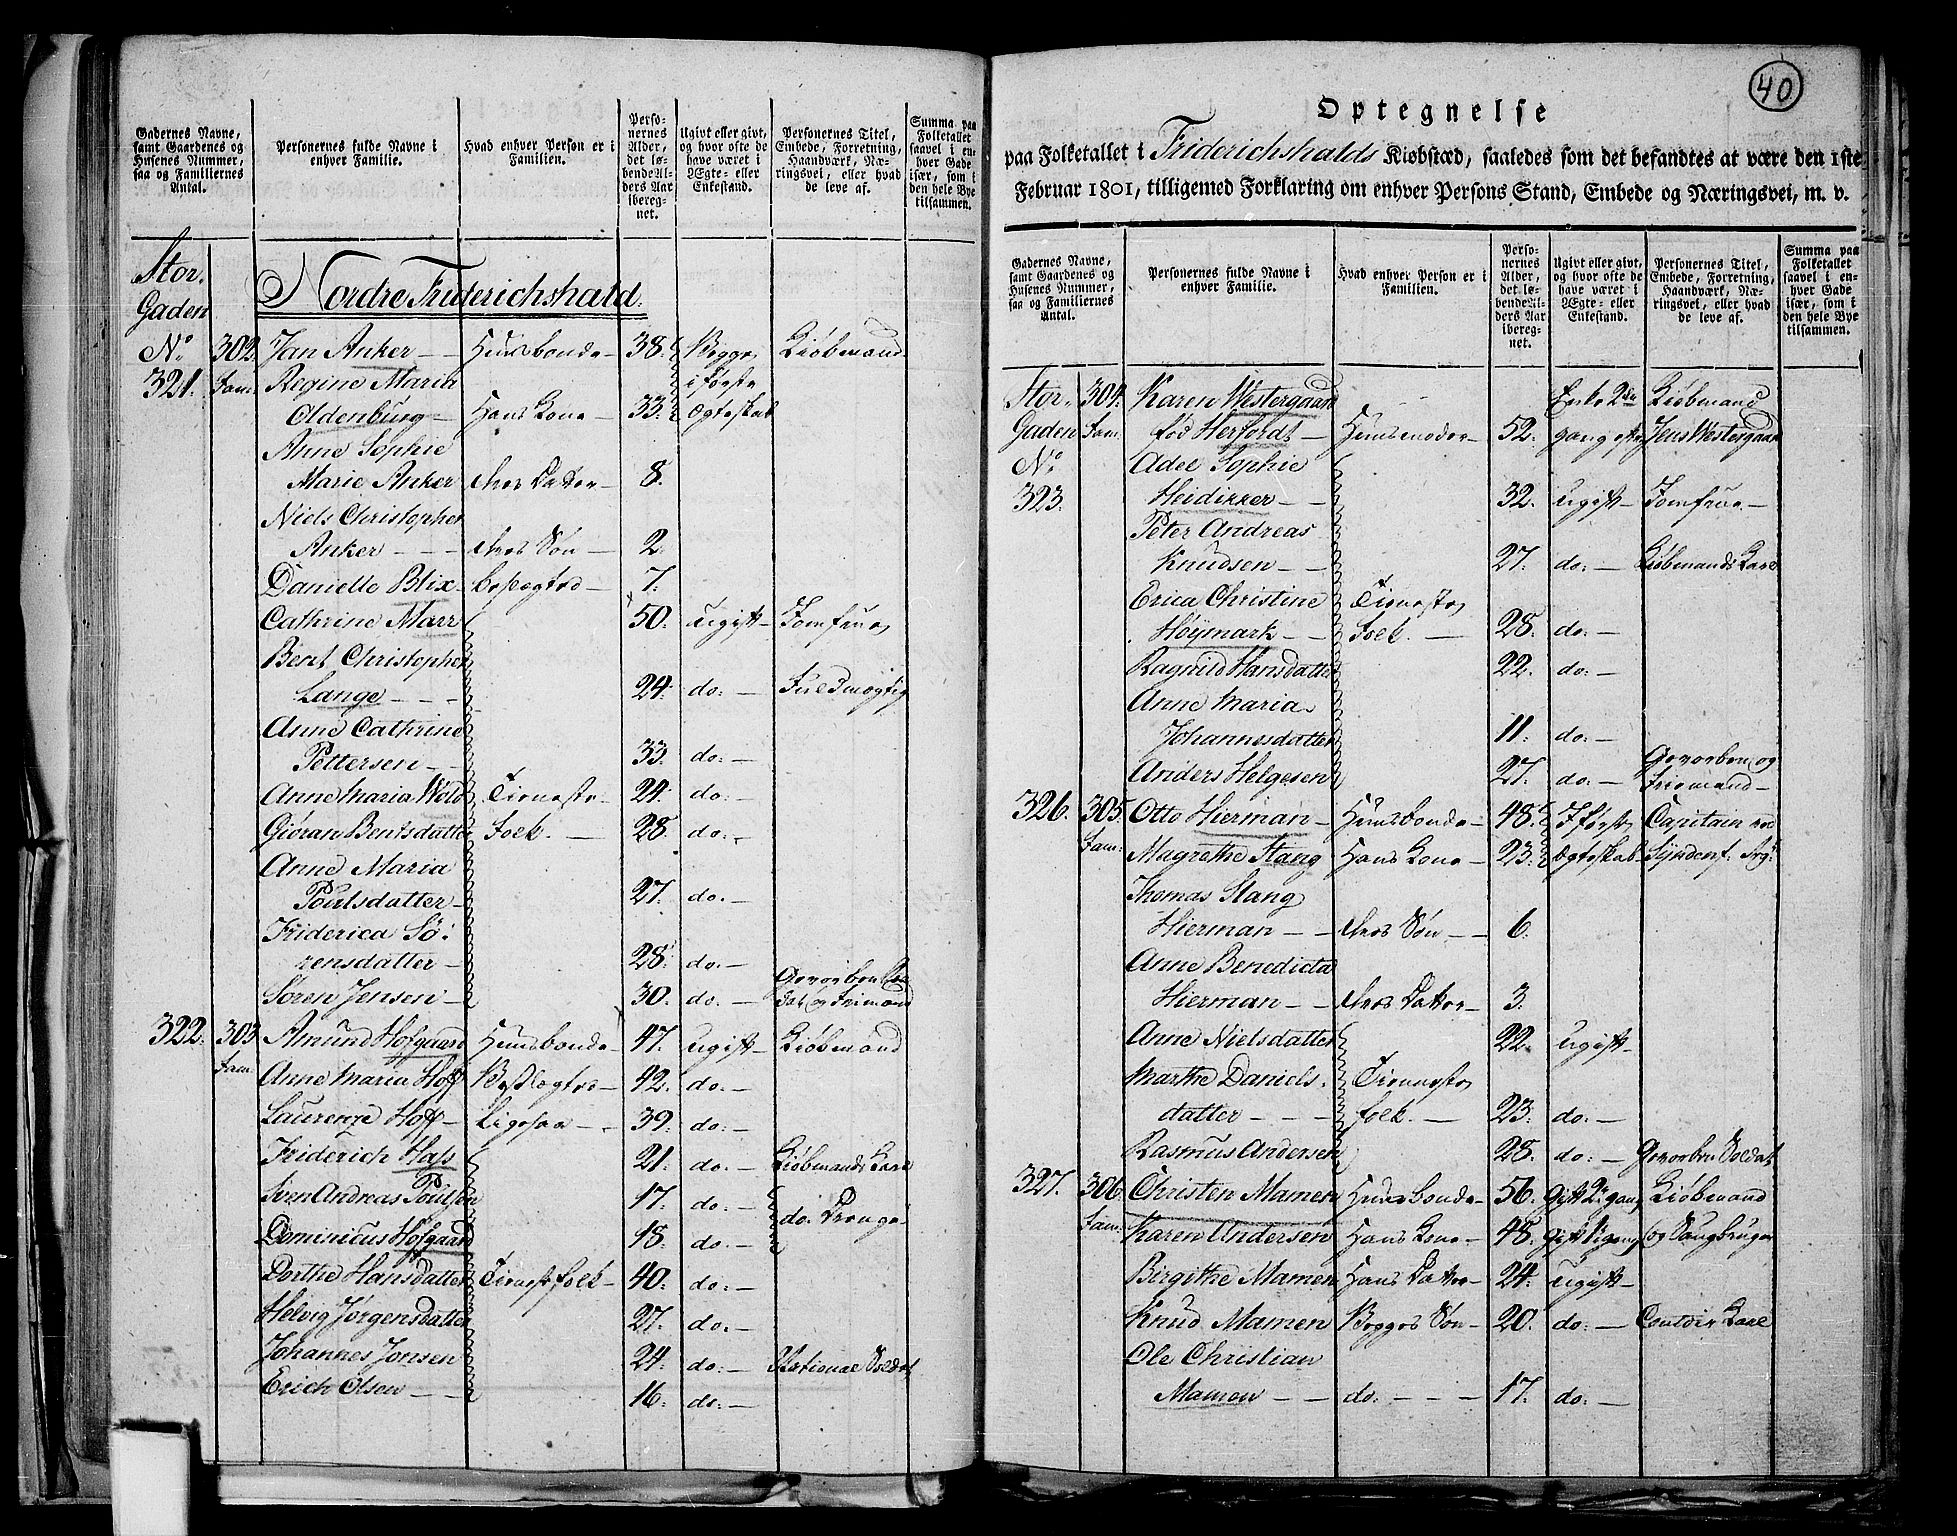 Gadernes Navne, samt Gaardenes og Husenes Nummer, saa og Familiernes Antal.
Personernes fulde Navne i enhver Familie.
Hvad enhver Person er i Familien.
Personernes Alder, det løbende Alders Aar iberegnet.
Ugivt eller givt, og hvor ofte de have været i Ægte- eller Enkestand.
Personernes Titel, Embede, Forretning, Haandværk, Næringsvej, eller hvad de leve af.
Summa paa Folketallet saavel i enhver Gade især, som i den hele Bye tilsammen.
Stor.
Gaden
Nordre Friderichshald.
No 302. Jan Anker — Huusbonde - 38. Begge Kiøbmand
321. Fam: Regine Maria i første
Oldenburg — Hans Kone - 33. Ægteskab
Anne Sophie
Marie Anker deres Datter - 8.
Niels Christopher
Anker - - - deres Søn - 2.
Danielle Blix - 7.
Cathrine Marr 50. ugift - Jomfrue
Bent Christopher
Lange - - - 24. do: — Fuldmægtig
Anne Cathrine
Pettersen — 33. do: —
Anne Maria Wold Tieneste 24. do: —
Giöran Bentsdatter Folk. — 28. do: —
Anne Maria
Poulsdatter — 27. do: —
Friderica Sö:
rensdatter — 28. do: — Gevorben Sol
Søren Jensen — 30. do: — dat og Frimand
322. 303. Amund Hofgaard Huusbonde - 47. ugift - Kiøbmand
Fam: Anne Maria Hoff 42. do: —
Laurenze Hoff — Ligesaa - - 39. do: —
Friderich Hass 21. do: — Kiøbmands Karl
Sven Andreas Poulsen 17. do: — do: Drenge
Dominicus Hofgaard 18. do: —
Dorthe Hansdatter Tienestefolk - 40. do: —
Helvig Jørgensdatter 27. do: —
Johannes Jonsen 24. do: — National Soldat
Erich Olsen - - 16. do: —
40
Optegnelse
paa Folketallet i Friderichshalds Kiøbstæd, saaledes som det befandtes at være den 1ste
Februar 1801, tilligemed Forklaring om enhver Persons Stand, Embede og Næringsvei, m. v.
Gadernes Navne, samt Gaardenes og Husenes Nummer, saa og Familiernes Antal.
Personernes fulde Navne i enhver Familie.
Hvad enhver Person er i Familien.
Personernes Alder, det løbende Alders Aar iberegnet.
Ugivt eller givt, og hvor ofte de have været i Ægte- eller Enkestand.
Personernes Titel, Embede, Forretning, Haandværk, Næringsvej, eller hvad de leve af.
Summa paa Folketallet saavel i enhver Gade især, som i den hele Bye tilsammen.
Stor. 304. Karen Westergaard Enke 2den Kiøbmand
Gaden Fam: fød Herfordt — Huusmoder - 52. gang efter Jens Westergaard
No Adel Sophie
323. Heidizzer - - 32. ugift - Jomfrue -
Peter Andreas
Knudsen - - 27. do: — Kiøbmands Karl
Erica Christine Tieneste
Høymark - - Folk. — 28. do: —
Ragnild Hansdatter 22. do: —
Anne Maria
Johannesdatter 11. do: —
Anders Helgesen 27. do: — Gevorben og Friemand —
326. 305. Otto Hierman - Huusbonde - 48. I første Capitain ved
Fam: Magrethe Stang Hans Kone - 23. Ægteskab Syndenf:
Thomas Stang
Hierman - - deres Søn - - 6.
Anne Benedicta
Hierman - - deres Datter - 3.
Anne Nielsdatter 22. ugift -
Marthe Daniels. Tieneste
datter - - - folk. — 23. do: —
Rasmus Andersen 28. do: — Gevorben Soldat
327. 306. Christen Mamen Huusbonde - 56. Gift 2den gang Kiøbmand
Fam: Karen Andersen Hans Kone - 48. Gift 1 gang og Saugbruger
Birgithe Mamen Hans Datter - 24. ugift -
Knud Mamen Begges Søn - 20. do: — Contoir Karl
Ole Christian
Mamen - - do: - - - 17. do: